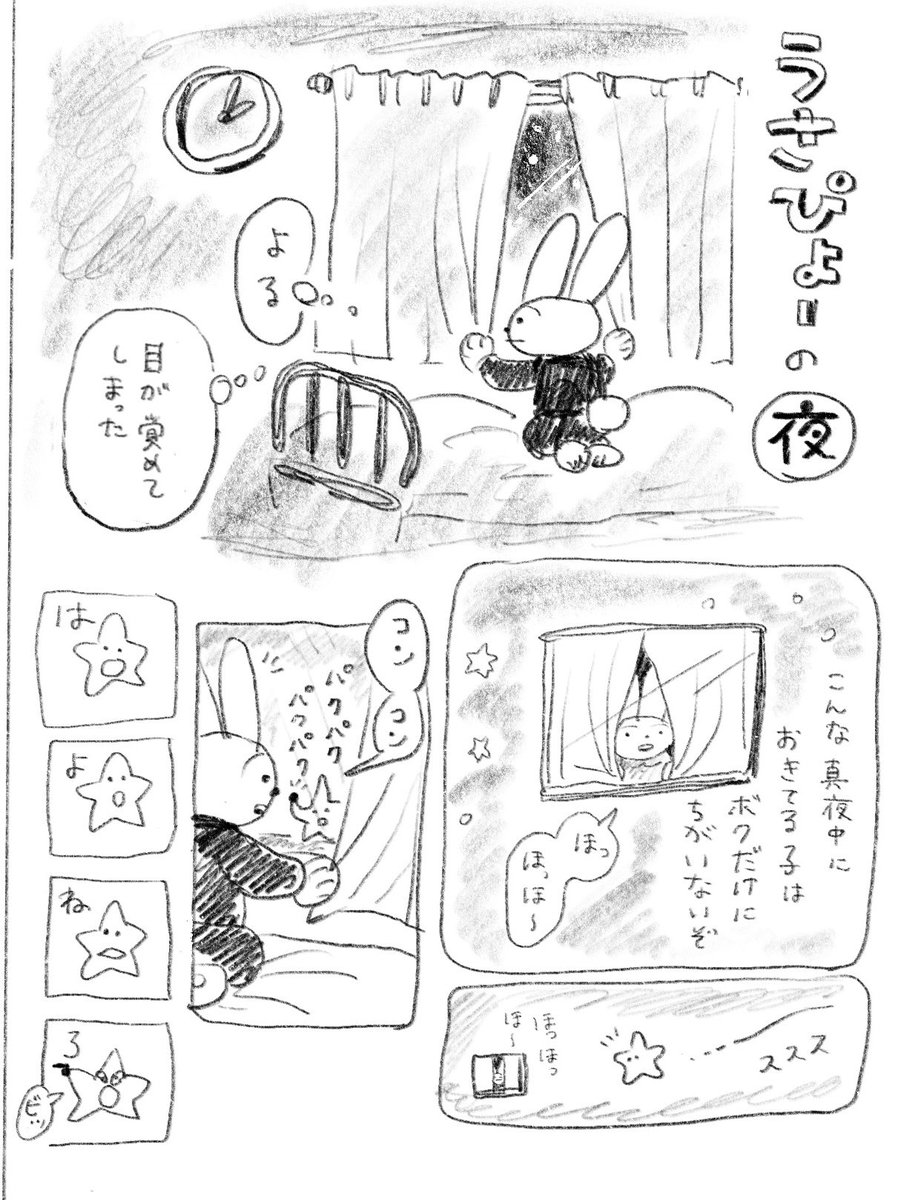 うさぴょーの夜
よる
目が覚めて
しまった
こんな真夜中に
おきてる子は
ボクだけに
ちがいないぞ
ほっ
ほっほ〜
ススス
ほっほっ
ほ〜
コン
コン
パクパク
パクパク
は
よ
ね
ろ
ビッ